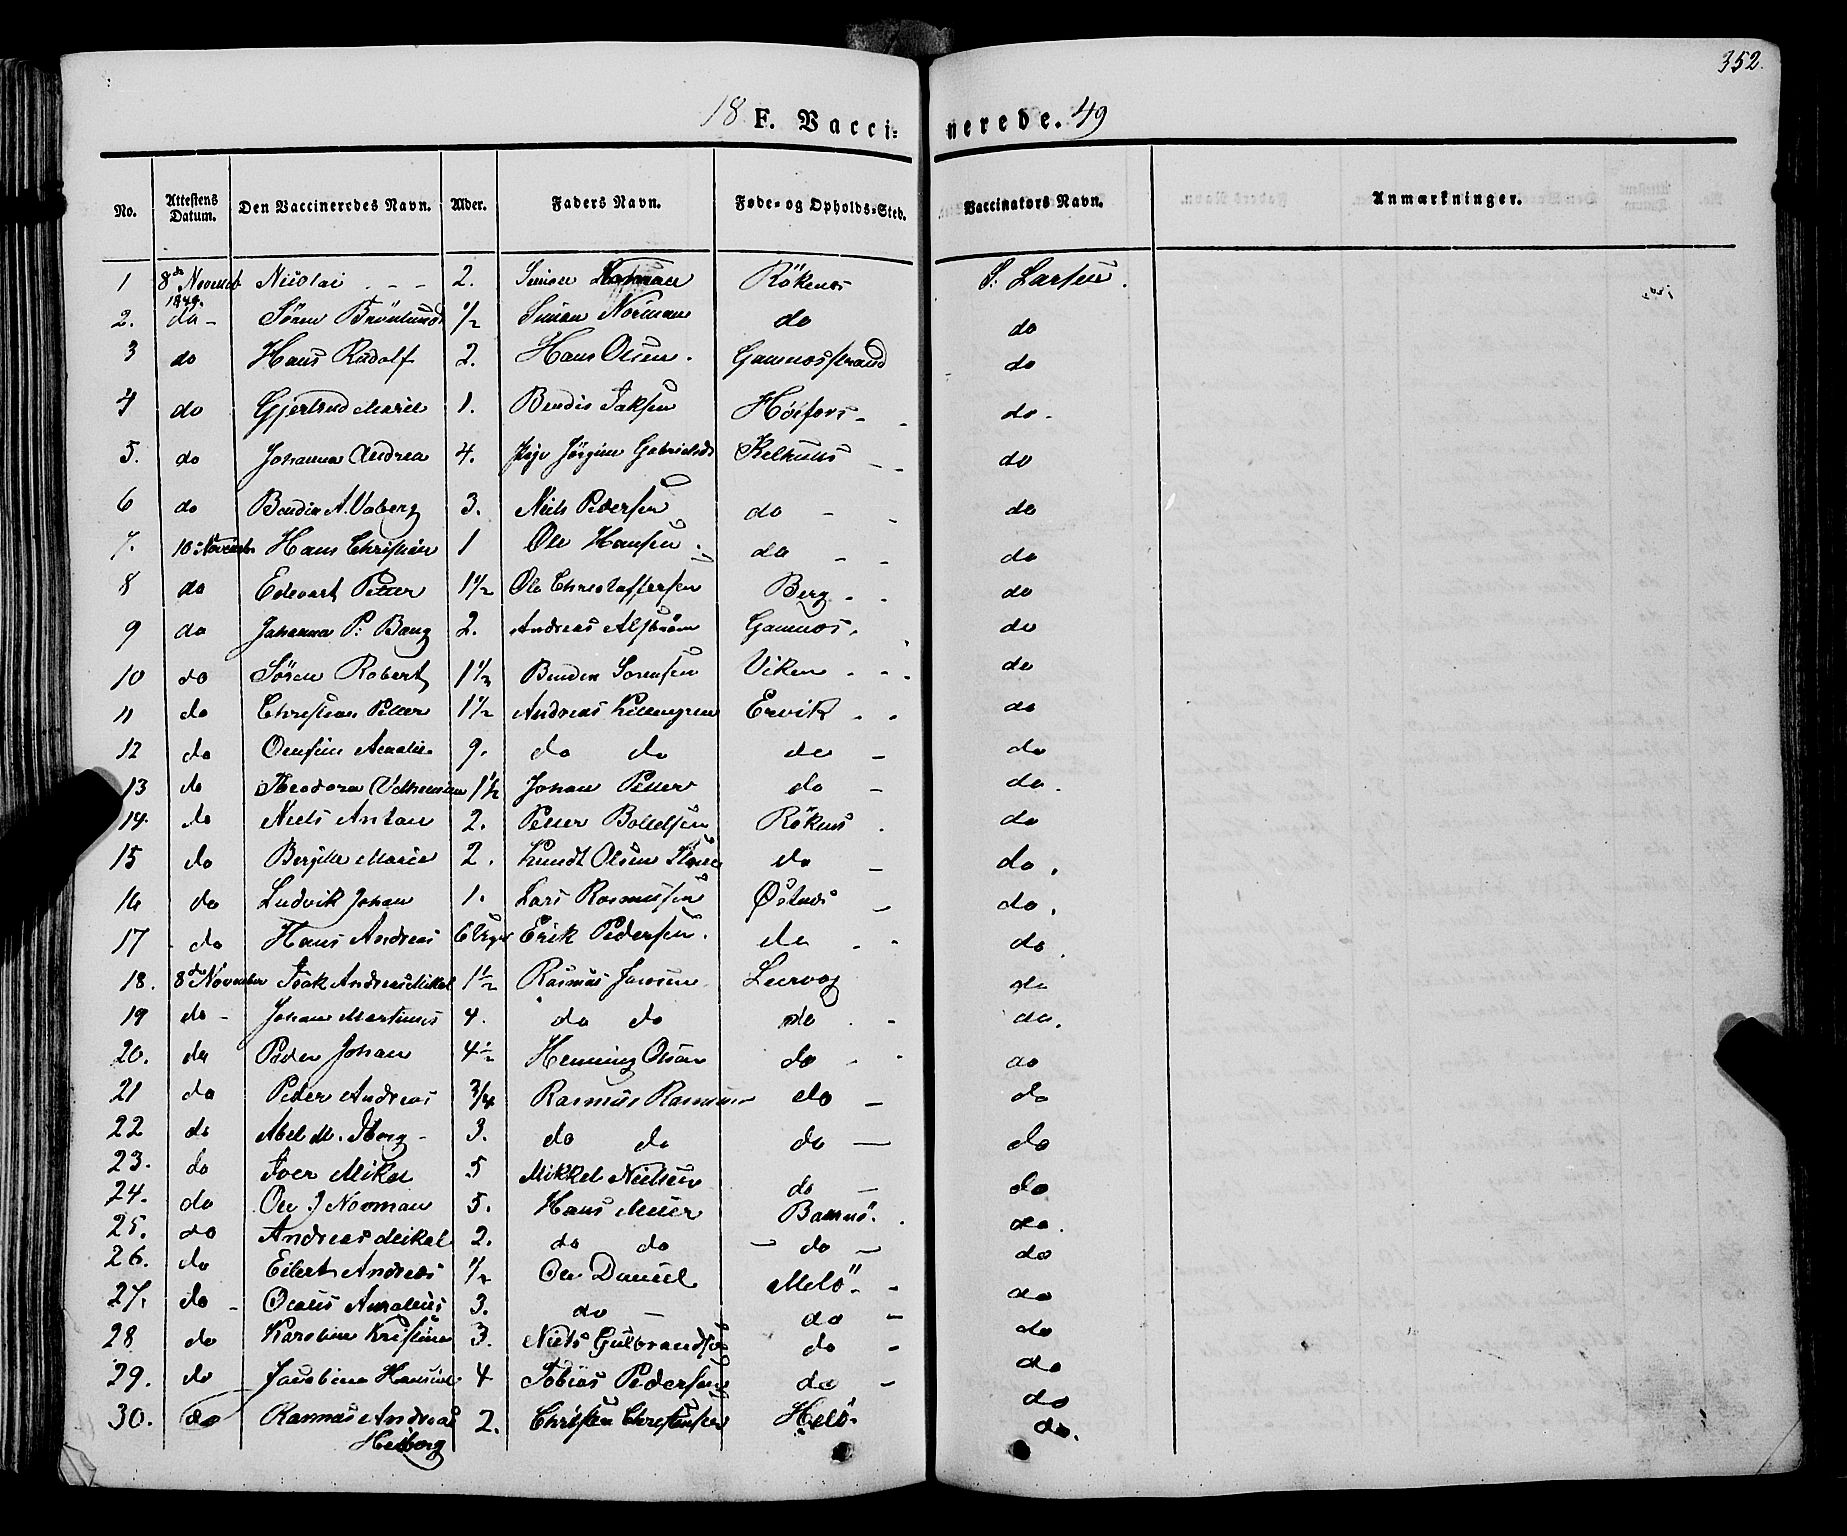 352.
18 F. Vacci- nerede. 49
No. Attestens Datum. Den Vaccineredes Navn. Alder. Faders Navn. Føde- og Opholds-Sted. Vaccinators Navn. Anmærkninger.
1 8de Novemb 1849. Nicolai - - 2. Simon Norman Rökenes S: Larsen.
2. do - Sören Brönlund 1/2 Simon Norman do do
3 do Hans Rudolf 2. Hans Olsen. Gamnesstrand do
4 do Gjertrud Marie 1. Bendix Isaksen do.
5. do Johanna Andrea 4. Pige Jörgine do
6 do Bendix A. 3. Niels Pedersen do - - do
7. 10: Novemb Hans Christian 1 Ole Hansen. do - - do
8 do Edevart Petter 1 1/2 Ole Christoffersen Berg - - do
9 do Johanna P: Bang 2. Andreas Gamnes. do
10 do Sören Robert 1 1/2 Bendix Sörensen Viken - - - do
11 do Christian Petter 1 1/2 Andreas Ervik - - do
12 do Amalie 9. do do do - do
13 do Theodora 1 1/2 Johan Petter do - do.
14. do Niels Antan 2. Petter Rökens . do
15 do Bergitte Marie 2. Knudt Olsen do - do.
16 do Ludvik Johan 1. Lars Rasmussen Østnes - do.
17 - do Hans Andreas 6 Erik Pedersen. do - - do.
18. 8de November Isak Andreas Mikal 1 1/2 Rasmus Jansen Leervog do
19 do - Johan Martinus 4. do do do - - do.
20. do Peder Johan 4 1/2 Henning Olsen do - - do
21 do Peter Andreas 3/4 Rasmus Rasmussen do - do
22 do Abel M. 3. do do do - do
23. do Iver Mikal 5 Mikkel Nielsen do - do
24. do Ole J Norman 5. Hans Meier . do.
25. do Andreas Mikal 2. do do - do - do
26. do Eilert Andreas 1/2 Ole Daniel Melö - do
27. do - Amalius 3. do - do - do
28 do Karoline Kristine 3. Niels Gulbrandsen do - do
29. do Jacobine Hansine 4 Tobias Pedersen do - do
30. do Rasmus Andreas 2. Christen Christensen do.
Heiberg